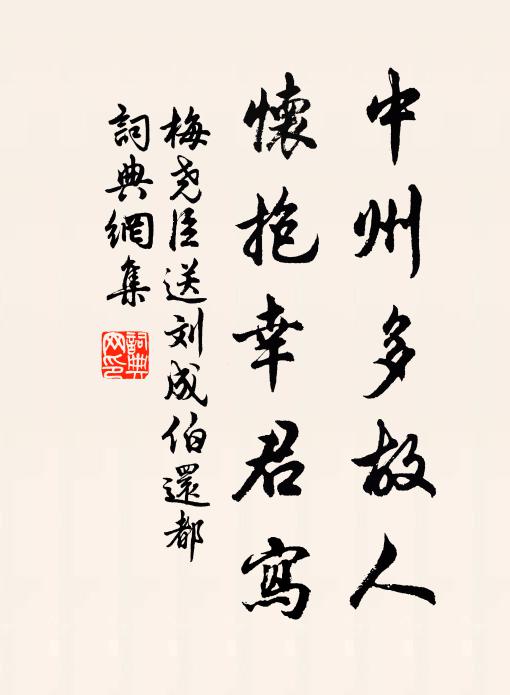 中州多故人
懷抱幸君寫
梅尧臣送刘成伯還都
詞典網集
詞典網印